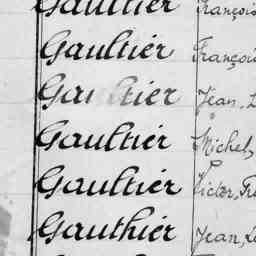 Gaultier François
Gaultier François
Gaultier Jean, L
Gaultier Michel,
Gaultier Victor, Fr
Gauthier Jean, L